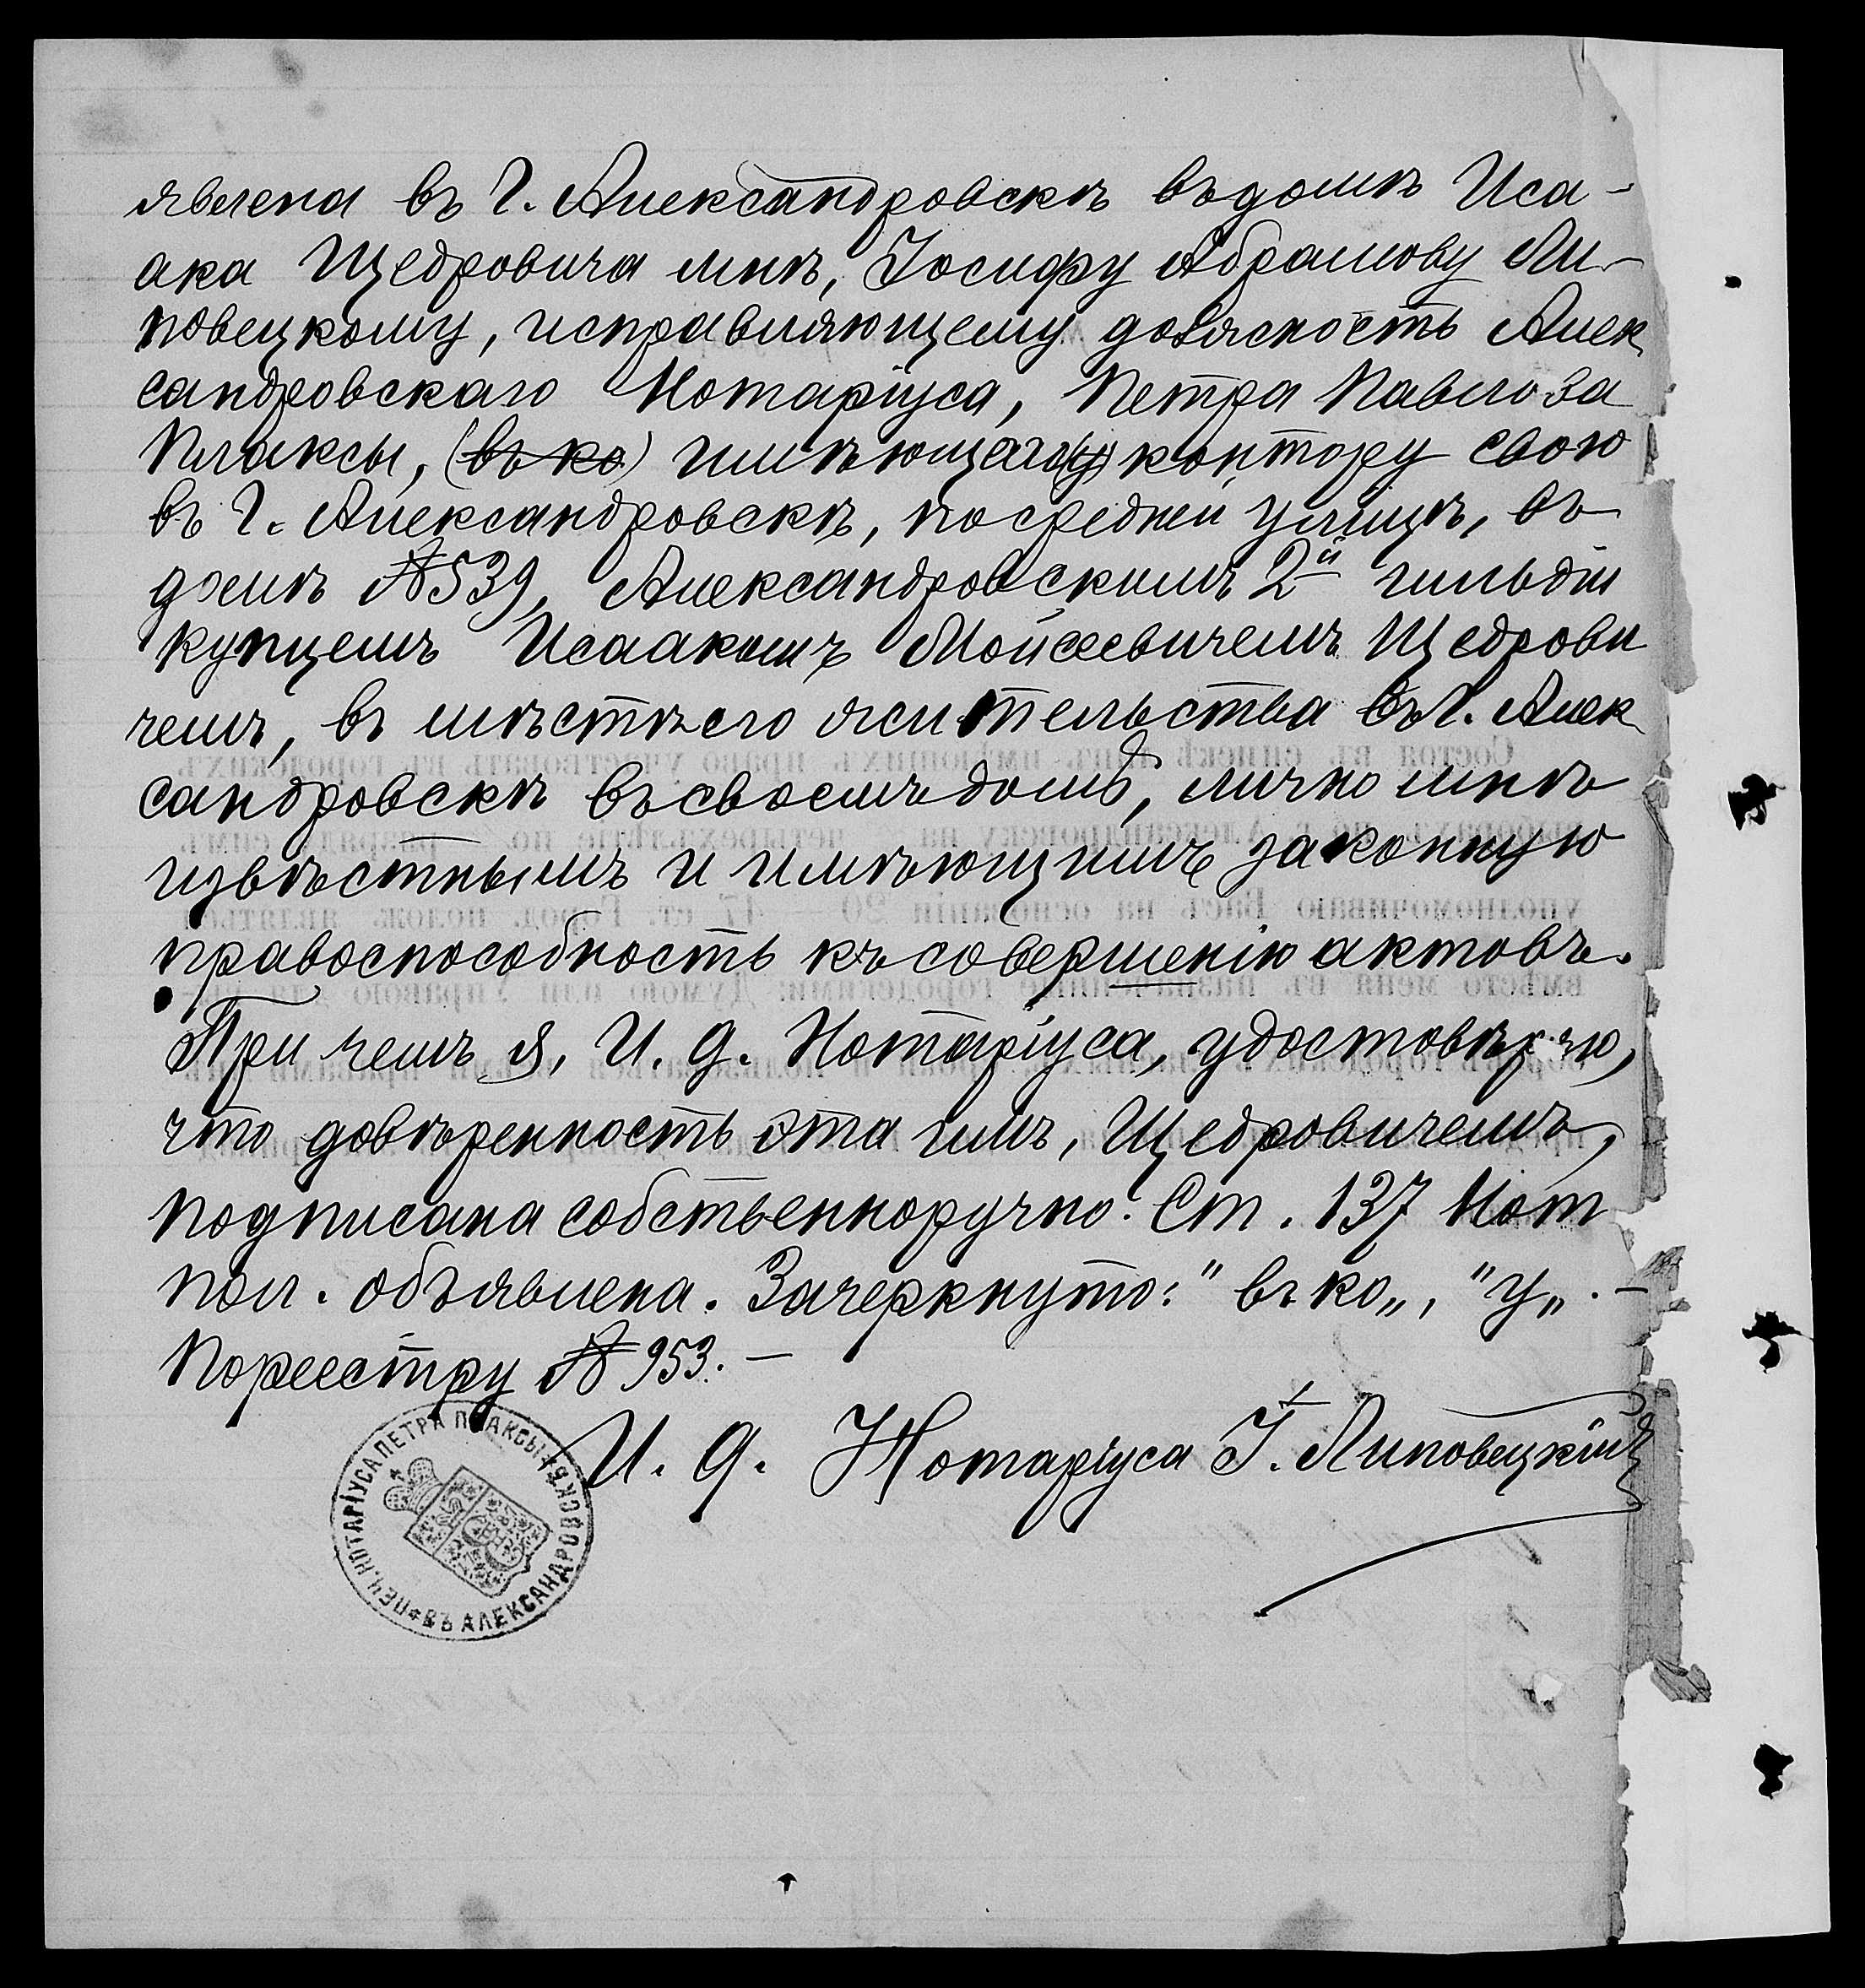 явлена въ Г. Александровскѣ въ домѣ Иса-
ака Щедровича мнѣ, Іосифу Абрамову Ли-
повецкому, исправляющему должность Алек
сандровскаго Нотаріуса, Петра Павлова
Плаксы, (въ ко) имѣющаго(у) контору свою
въ Г. Александровскѣ, по средней улицѣ, въ
домѣ №539, Александровскимъ 2й гильдіи
купцемъ Исаакомъ Мойсеевичемъ Щедрови
чемъ, въ мѣстѣ его жительства въ Г. Алек
сандровскѣ въ своемъ домѣ, лично мнѣ
извѣстнымъ и имѣющимъ законную
правоспособность къ совершенію актовъ.
При чемъ я, И. д. Нотаріуса, удостовѣряю,
что довѣренность эта имъ, Щедровичемъ,
подписана собственноручно. Ст. 137 Нот
пол. объявлена. Зачеркнуто: "въ ко„, "у„. -
По реестру № 953. —
И. д. Нотаріуса І. Липовецкій
ПЕЧ. НОТАРІУСА ПЕТРА ПЛАКСЫ ВЪ АЛЕКСАНДРОВСКѢ